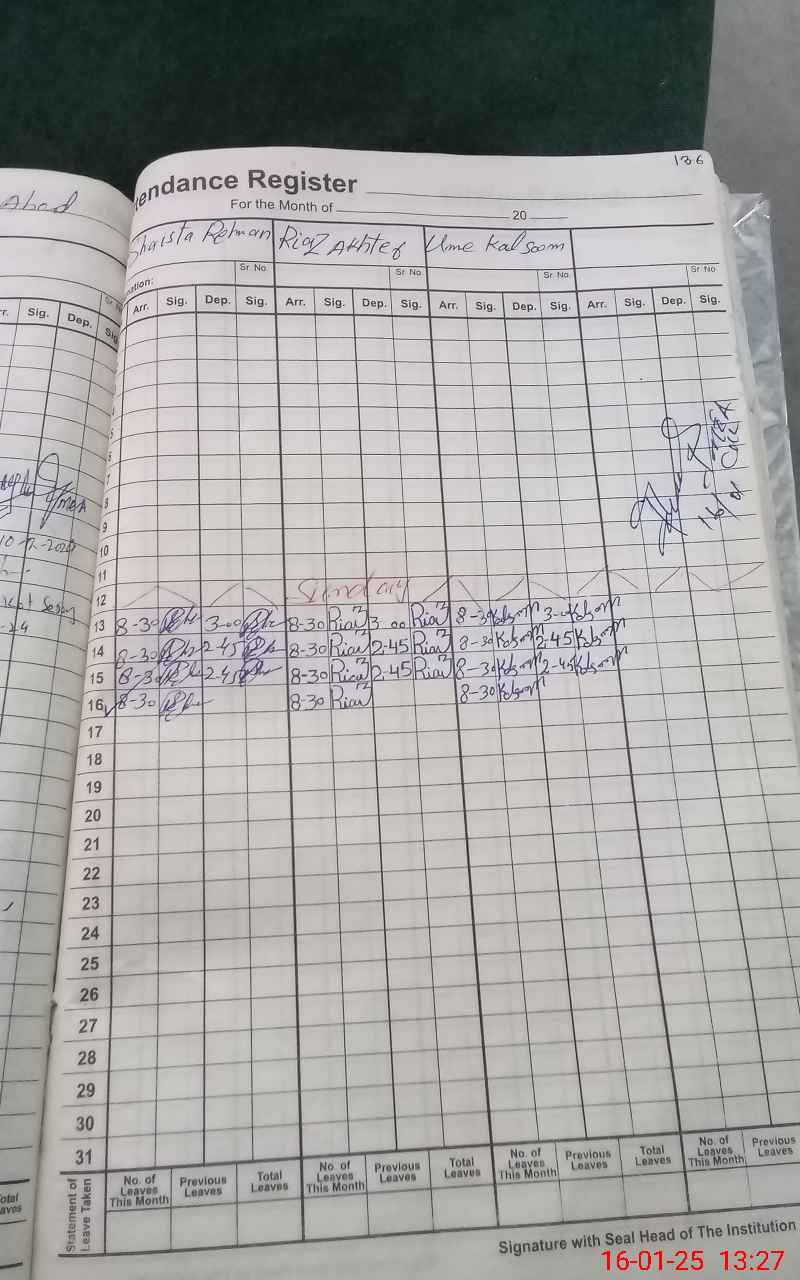 136
Attendance Register
For the Month of 20
Ahad
Shaista Rehman Riaz Akhter Ume Kalsoom
Sr. No. Sr. No. Sr. No. Sr. No
nation:
Sig. Dep. Sig
Arr. Sig. Dep. Sig. Arr. Sig. Dep. Sig. Arr. Sig. Dep. Sig. Arr. Sig. Dep. Sig.
7
8
9
10
11
12 Sunday
13 8-30 3-00 8-30 Riaz 3-00 Riaz 8-30 Kalsoom 3-00 Kalsoom
14 8-30 2-45 8-30 Riaz 2-45 Riaz 8-30 Kalsoom 2-45 Kalsoom
15 8-30 2-45 8-30 Riaz 2-45 Riaz 8-30 Kalsoom 2-45 Kalsoom
16 8-30 8-30 Riaz 8-30 Kalsoom
17
18
19
20
21
22
23
24
25
26
27
28
29
30
31
Statement of Leave Taken
No. of Leaves This Month Previous Leaves Total Leaves No. of Leaves This Month Previous Leaves Total Leaves No. of Leaves This Month Previous Leaves Total Leaves No. of Leaves This Month Previous Leaves
Signature with Seal Head of The Institution
16-01-25 13:27